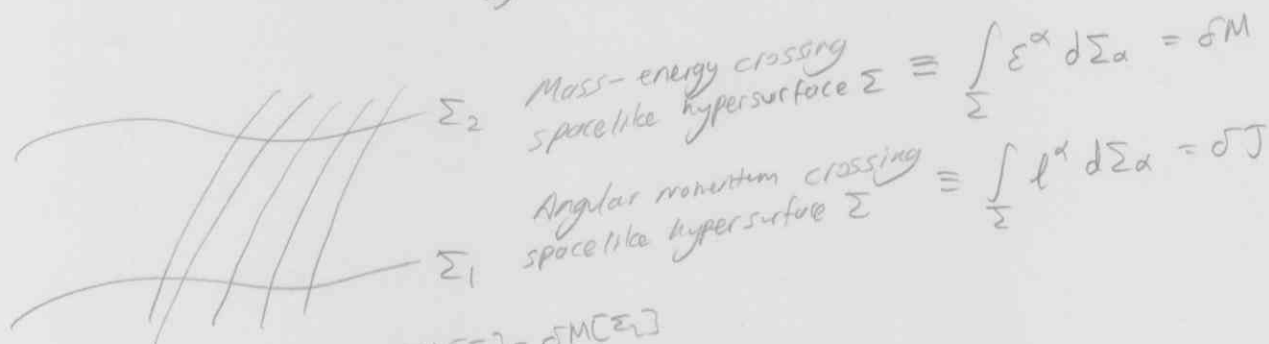 Σ₂
Mass-energy crossing
spacelike hypersurface Σ ≡ ∫_Σ ε^α dΣ_α = δM
Angular momentum crossing
spacelike hypersurface Σ ≡ ∫_Σ ℓ^α dΣ_α = δJ
Σ₁
δM[Σ₂]